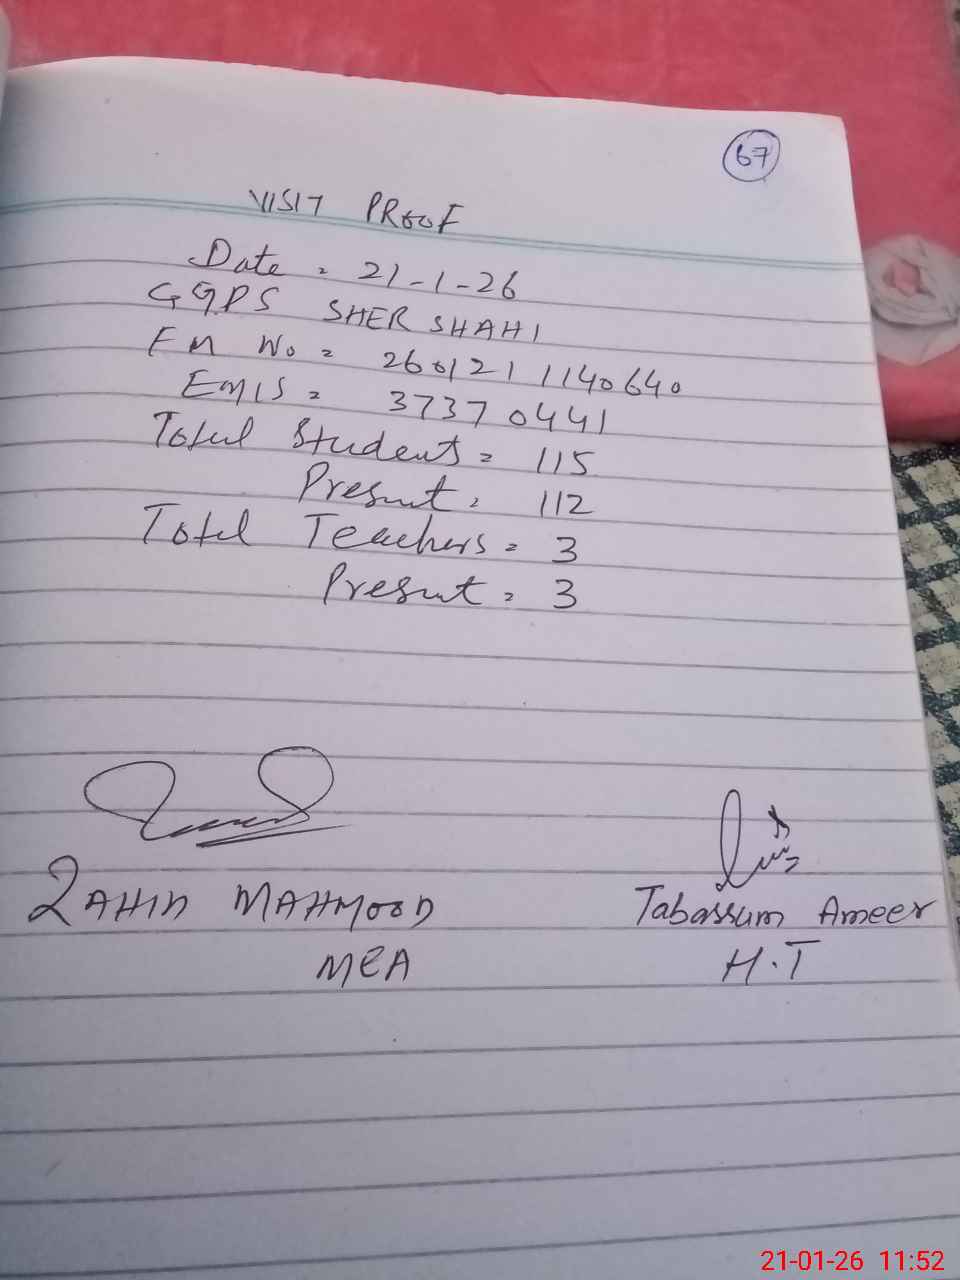 67
VISIT PROOF
Date = 21-1-26
GGPS SHER SHAHI
EM No = 260121 1140640
EMIS = 37370441
Total Students = 115
Present = 112
Total Teachers = 3
Present = 3
ZAHID MAHMOOD
Tabassum Ameer
MEA
H.T
21-01-26 11:52